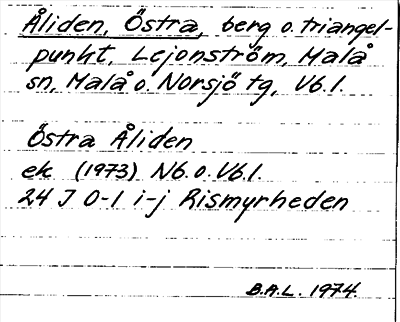 Åliden, Östra, berg o. triangel-
punkt, Lejonström, Malå
sn, Malå o. Norsjö tg, Vb. l.
Östra Åliden
ek (1973) Nb. o. Vb. l.
24 J 0-1 i-j Rismyrheden
B.A.L. 1974.